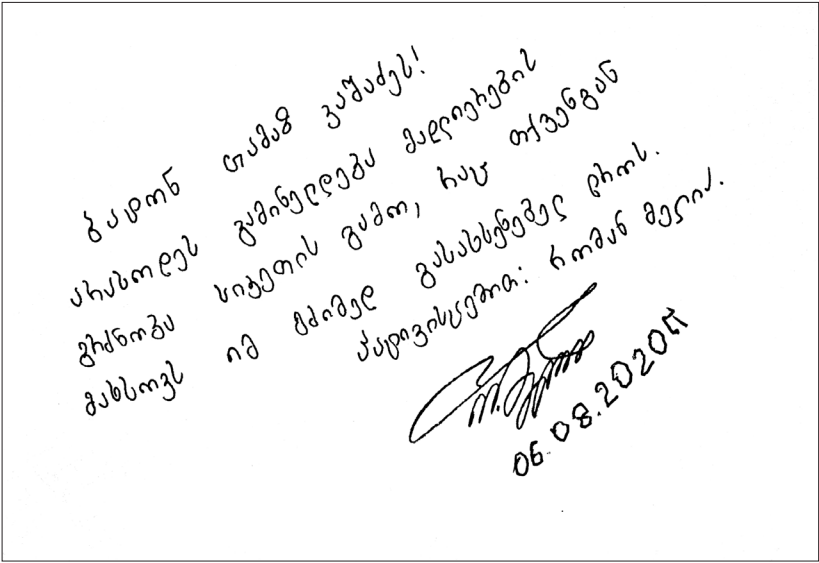 ბატონ თამაზ ვაშაძეს!
არასოდეს გამინელდება მადლიერების
გრძნობა სიკეთის გამო, რაც თქვენგან
მახსოვს იმ მძიმედ გასახსენებელ დროს.
პატივისცემით: რომან მელია.
06.08.2020წ